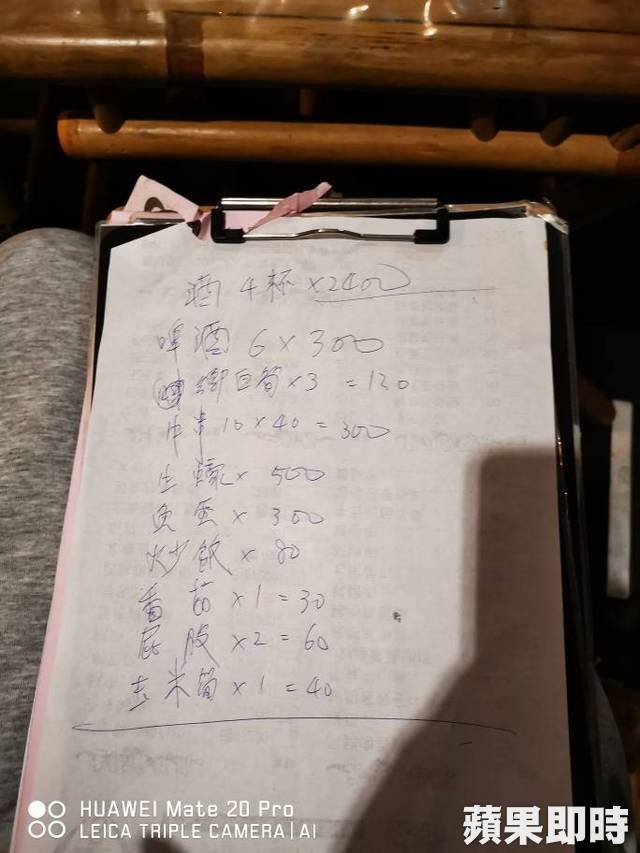 酒 4杯 ×2400
啤酒 6 × 300
綁白筍 ×3 = 120
牛串 10 × 40 = 300
生蠔 × 500
魚蛋 × 300
炒飯 × 80
番茄 ×1 = 30
屁股 ×2 = 60
玉米筍 ×1 = 40
HUAWEI Mate 20 Pro
LEICA TRIPLE CAMERA | AI
蘋果即時